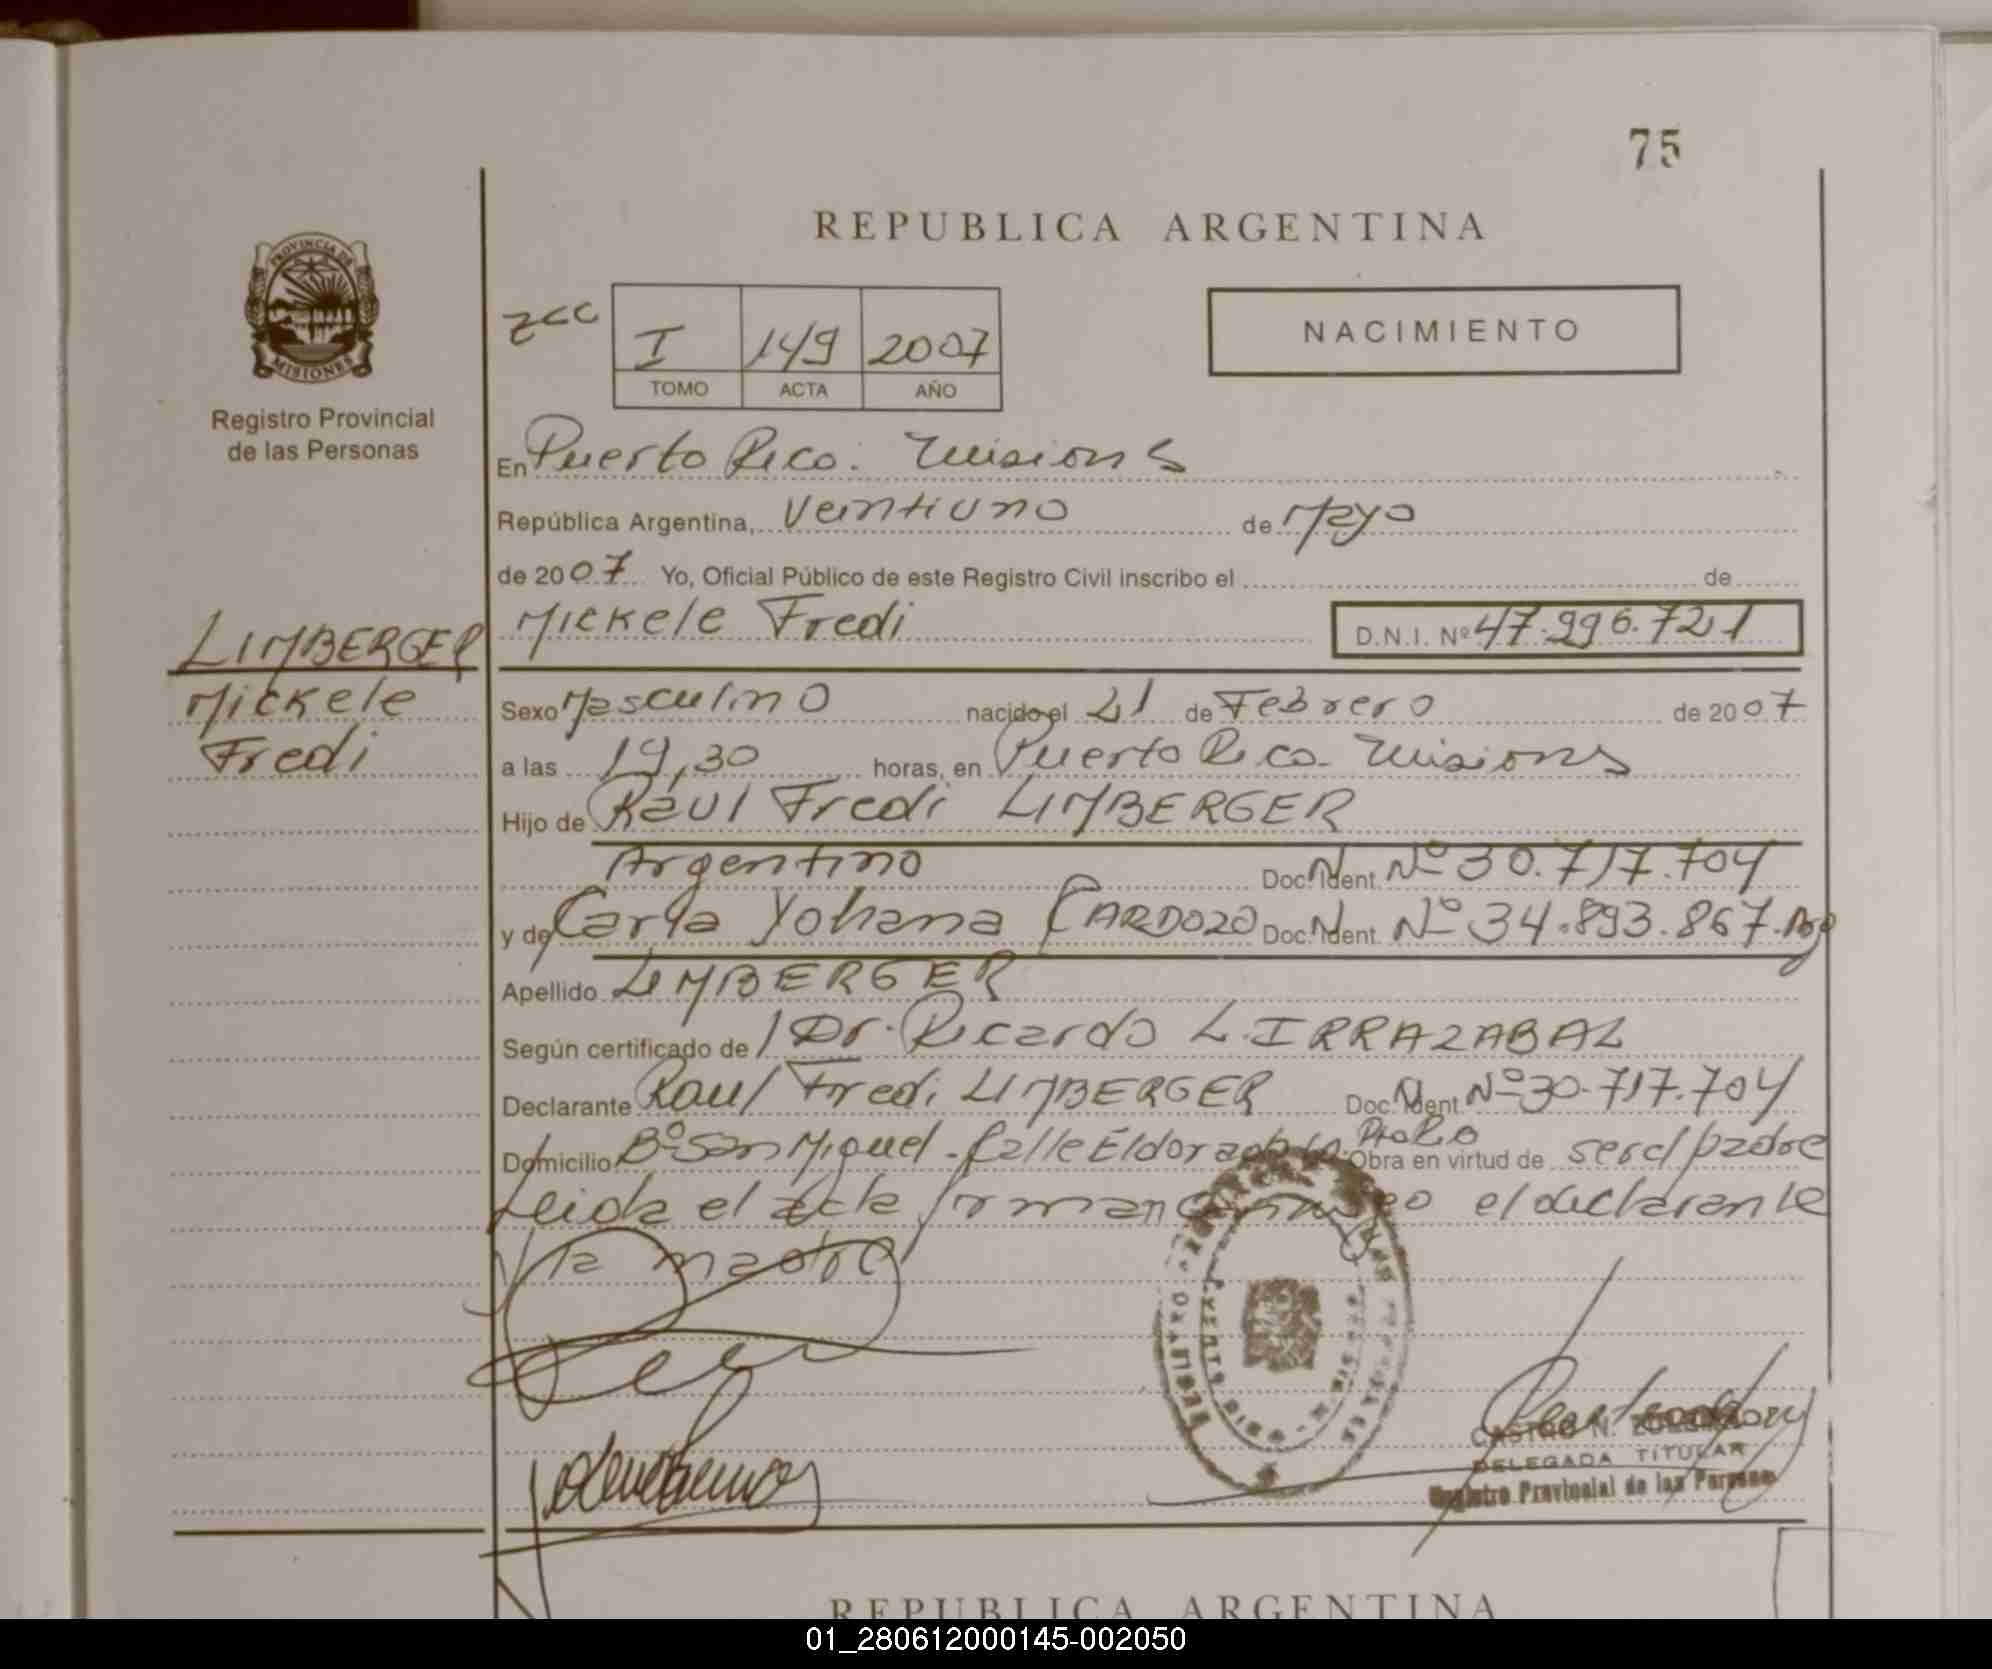 75
REPUBLICA ARGENTINA
PROVINCIA DE
MISIONES
Registro Provincial
de las Personas
zcc
I 149 2007
TOMO ACTA AÑO
NACIMIENTO
En Puerto Rico. Misiones
República Argentina, Veintiuno de Mayo
de 2007 Yo, Oficial Público de este Registro Civil inscribo el de
Mickele Fredi D.N.I. Nº 47.296.721
LIMBERGER
Mickele
Fredi
Sexo Masculino nacido el 21 de Febrero de 2007
a las 19,30 horas, en Puerto Rico. Misiones
Hijo de Raul Fredi LIMBERGER
Argentino Doc. Ident. Nº 30.717.704
y de Carla Yohana CARDOZO Doc. Ident. Nº 34.893.867.
Apellido LIMBERGER
Según certificado de Dr. Ricardo L. IRRAZABAL
Declarante Raul Fredi LIMBERGER Doc. Ident Nº 30.717.704
Domicilio Bº San Miguel - Calle Eldorado Pto Rico Obra en virtud de ser el padre
Leida el acta firman conmigo el declarante
y la madre
CASTRO N.
DELEGADA TITULAR
Registro Provincial de las Personas
REPUBLICA ARGENTINA
01_280612000145-002050